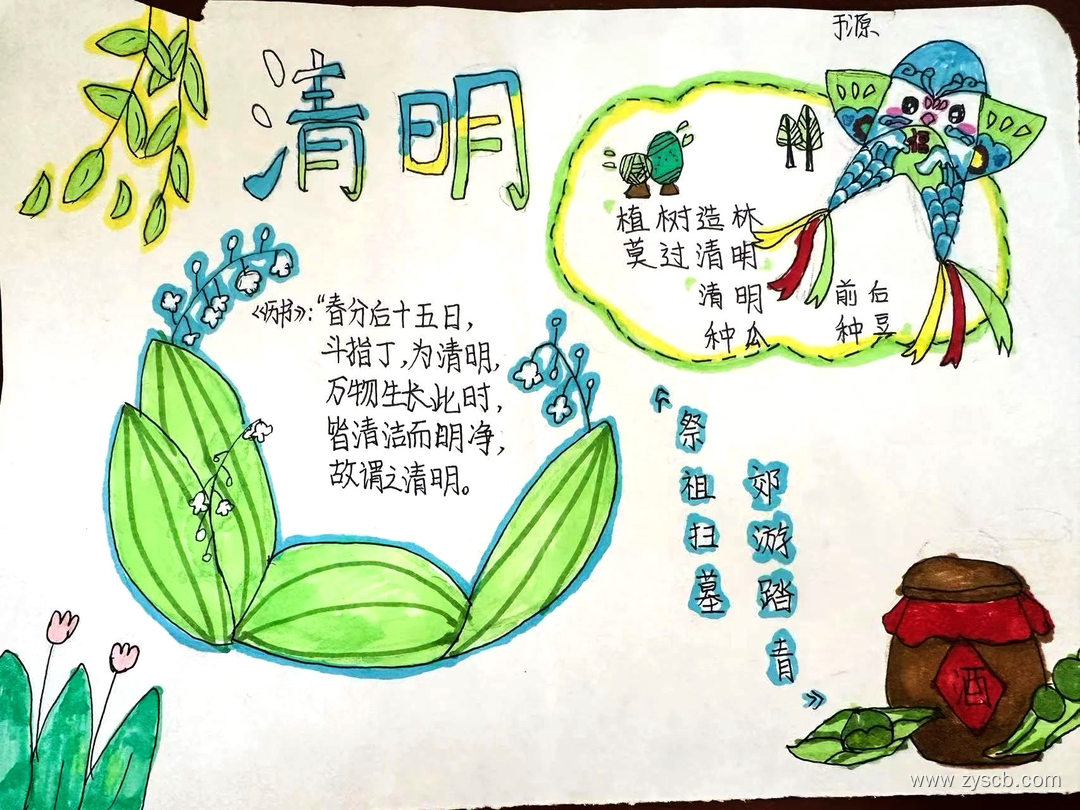 清明
福
植树造林
莫过清明
清明 前后
种瓜 种豆
《历书》:“春分后十五日,
斗指丁,为清明,
万物生长此时,
皆清洁而明净,
故谓之清明。
《祭祖扫墓
郊游踏青》
酒
www.zyscb.com